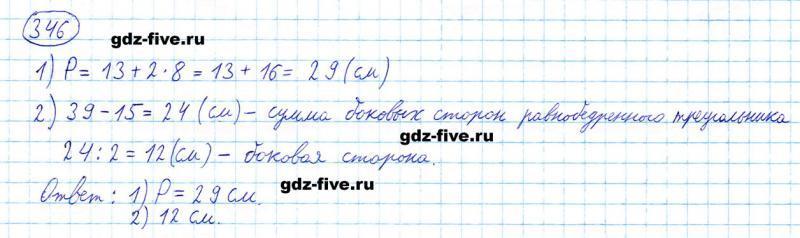 346
gdz-five.ru
1) P = 13 + 2 · 8 = 13 + 16 = 29 (см)
2) 39 - 15 = 24 (см) - сумма боковых сторон равнобедренного треугольника
gdz-five.ru
24 : 2 = 12 (см) - боковая сторона.
gdz-five.ru
Ответ: 1) P = 29 см.
2) 12 см.